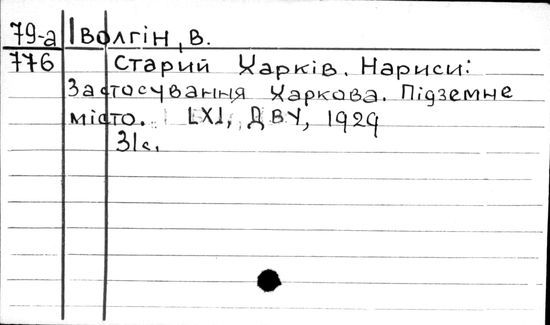 79-а Іволгін, В.
776 Старий Харків. Нариси:
Застосування Харкова. Підземне
місто. [X], ДВУ, 1929
31 с.